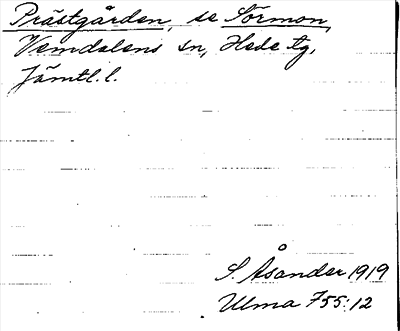 Prästgården, se Sörmon,
Vemdalens sn, Hede tg,
Jämtl. l.
S. Åsander 1919
Ulma 755:12